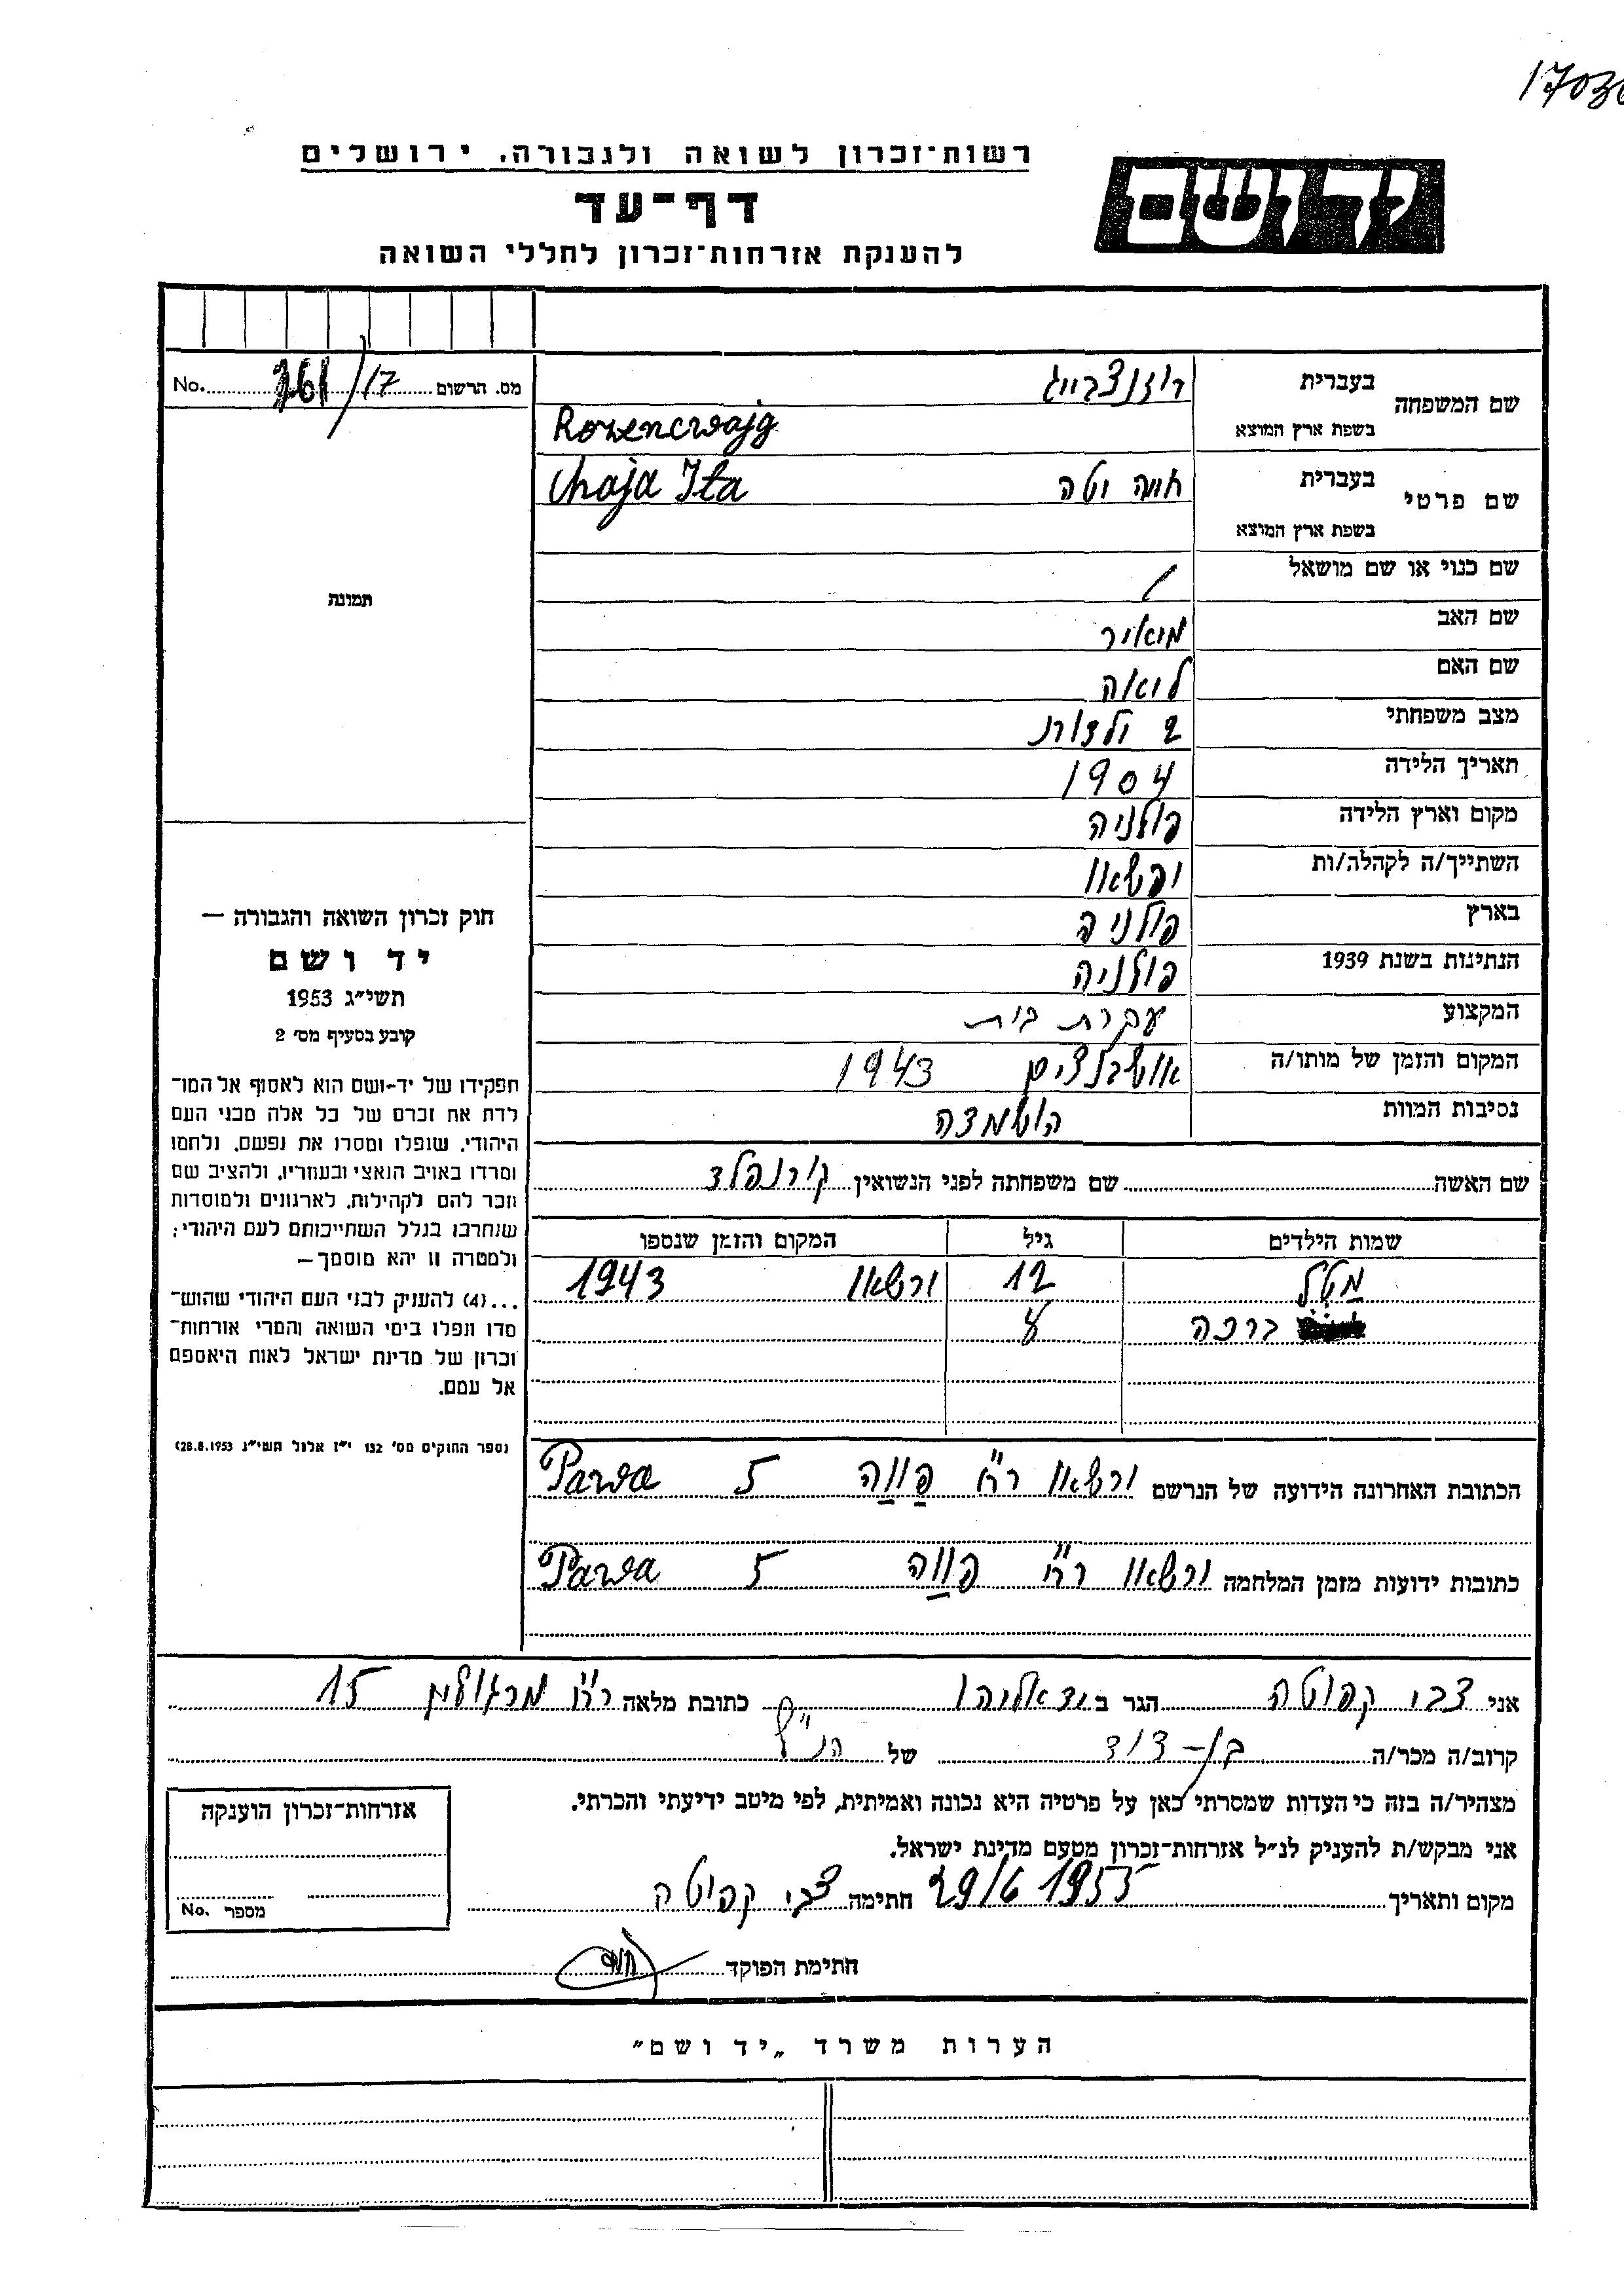 1703
רשות־זכרון לשואה ולגבורה, ירושלים
יד ושם
דף־עד
להענקת אזרחות־זכרון לחללי השואה
שם המשפחה בעברית רוזנצבייג
בשפת ארץ המוצא Rozencwajg
שם פרטי בעברית חיה יטה Chaja Ita
בשפת ארץ המוצא
שם כנוי או שם מושאל /
שם האב מיאיר
שם האם לואה
מצב משפחתי 2 ילדות
תאריך הלידה 1904
מקום וארץ הלידה פולניה
השתייך/ה לקהלה/ות ורשאו
בארץ פולניה
הנתינות בשנת 1939 פולניה
המקצוע עקרת בית
המקום והזמן של מותו/ה 1943
נסיבות המוות הושמדה
שם האשה שם משפחתה לפני הנשואין קורנפלד
שמות הילדים גיל המקום והזמן שנספו
מטל 12 ורשאו 1943
ברכה 8
הכתובת האחרונה הידועה של הנרשם ורשאו רח' פּוַוה 5 Pawa
כתובות ידועות מזמן המלחמה ורשאו רח' פּוַוה 5 Pawa
מס. הרשום 761/17 No.
תמונה
חוק זכרון השואה והגבורה —
יד ושם
תשי״ג 1953
קובע בסעיף מס׳ 2
תפקידו של יד-ושם הוא לאסוף אל המו־
לדת את זכרם של כל אלה מבני העם
היהודי, שנפלו ומסרו את נפשם, נלחמו
ומרדו באויב הנאצי ובעוזריו, ולהציב שם
וזכר להם לקהילות, לארגונים ולמוסדות
שנחרבו בגלל השתייכותם לעם היהודי;
ולמטרה זו יהא מוסמך—
...(4) להעניק לבני העם היהודי שהוש־
מדו ונפלו בימי השואה והמרי אזרחות־
זכרון של מדינת ישראל לאות היאספם
אל עמם.
(ספר החוקים מס׳ 132 י״ז אלול תשי״ג 28.8.1953)
אני צבי קפוטה הגר ב יד אליהו כתובת מלאה רח' מרגולין 15
קרוב/ה מכר/ה בן-דוד של הנ״ל
מצהיר/ה בזה כי העדות שמסרתי כאן על פרטיה היא נכונה ואמיתית, לפי מיטב ידיעתי והכרתי.
אני מבקש/ת להעניק לנ״ל אזרחות־זכרון מטעם מדינת ישראל.
מקום ותאריך 29/6 1955 חתימה צבי קפוטה
חתימת הפוקד
אזרחות־זכרון הוענקה
מספר No.
הערות משרד „יד ושם״